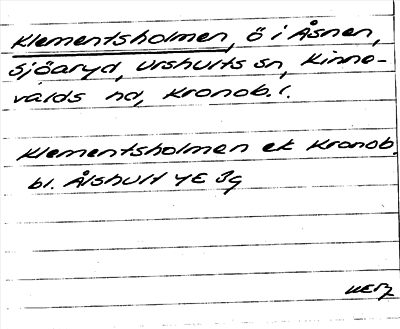 Klementsholmen, ö i Åsnen,
Sjöaryd, Urshults sn, Kinne-
valds hd, Kronob. l.
Klementsholmen ek Kronob.
bl. Ålshult 4E 3g